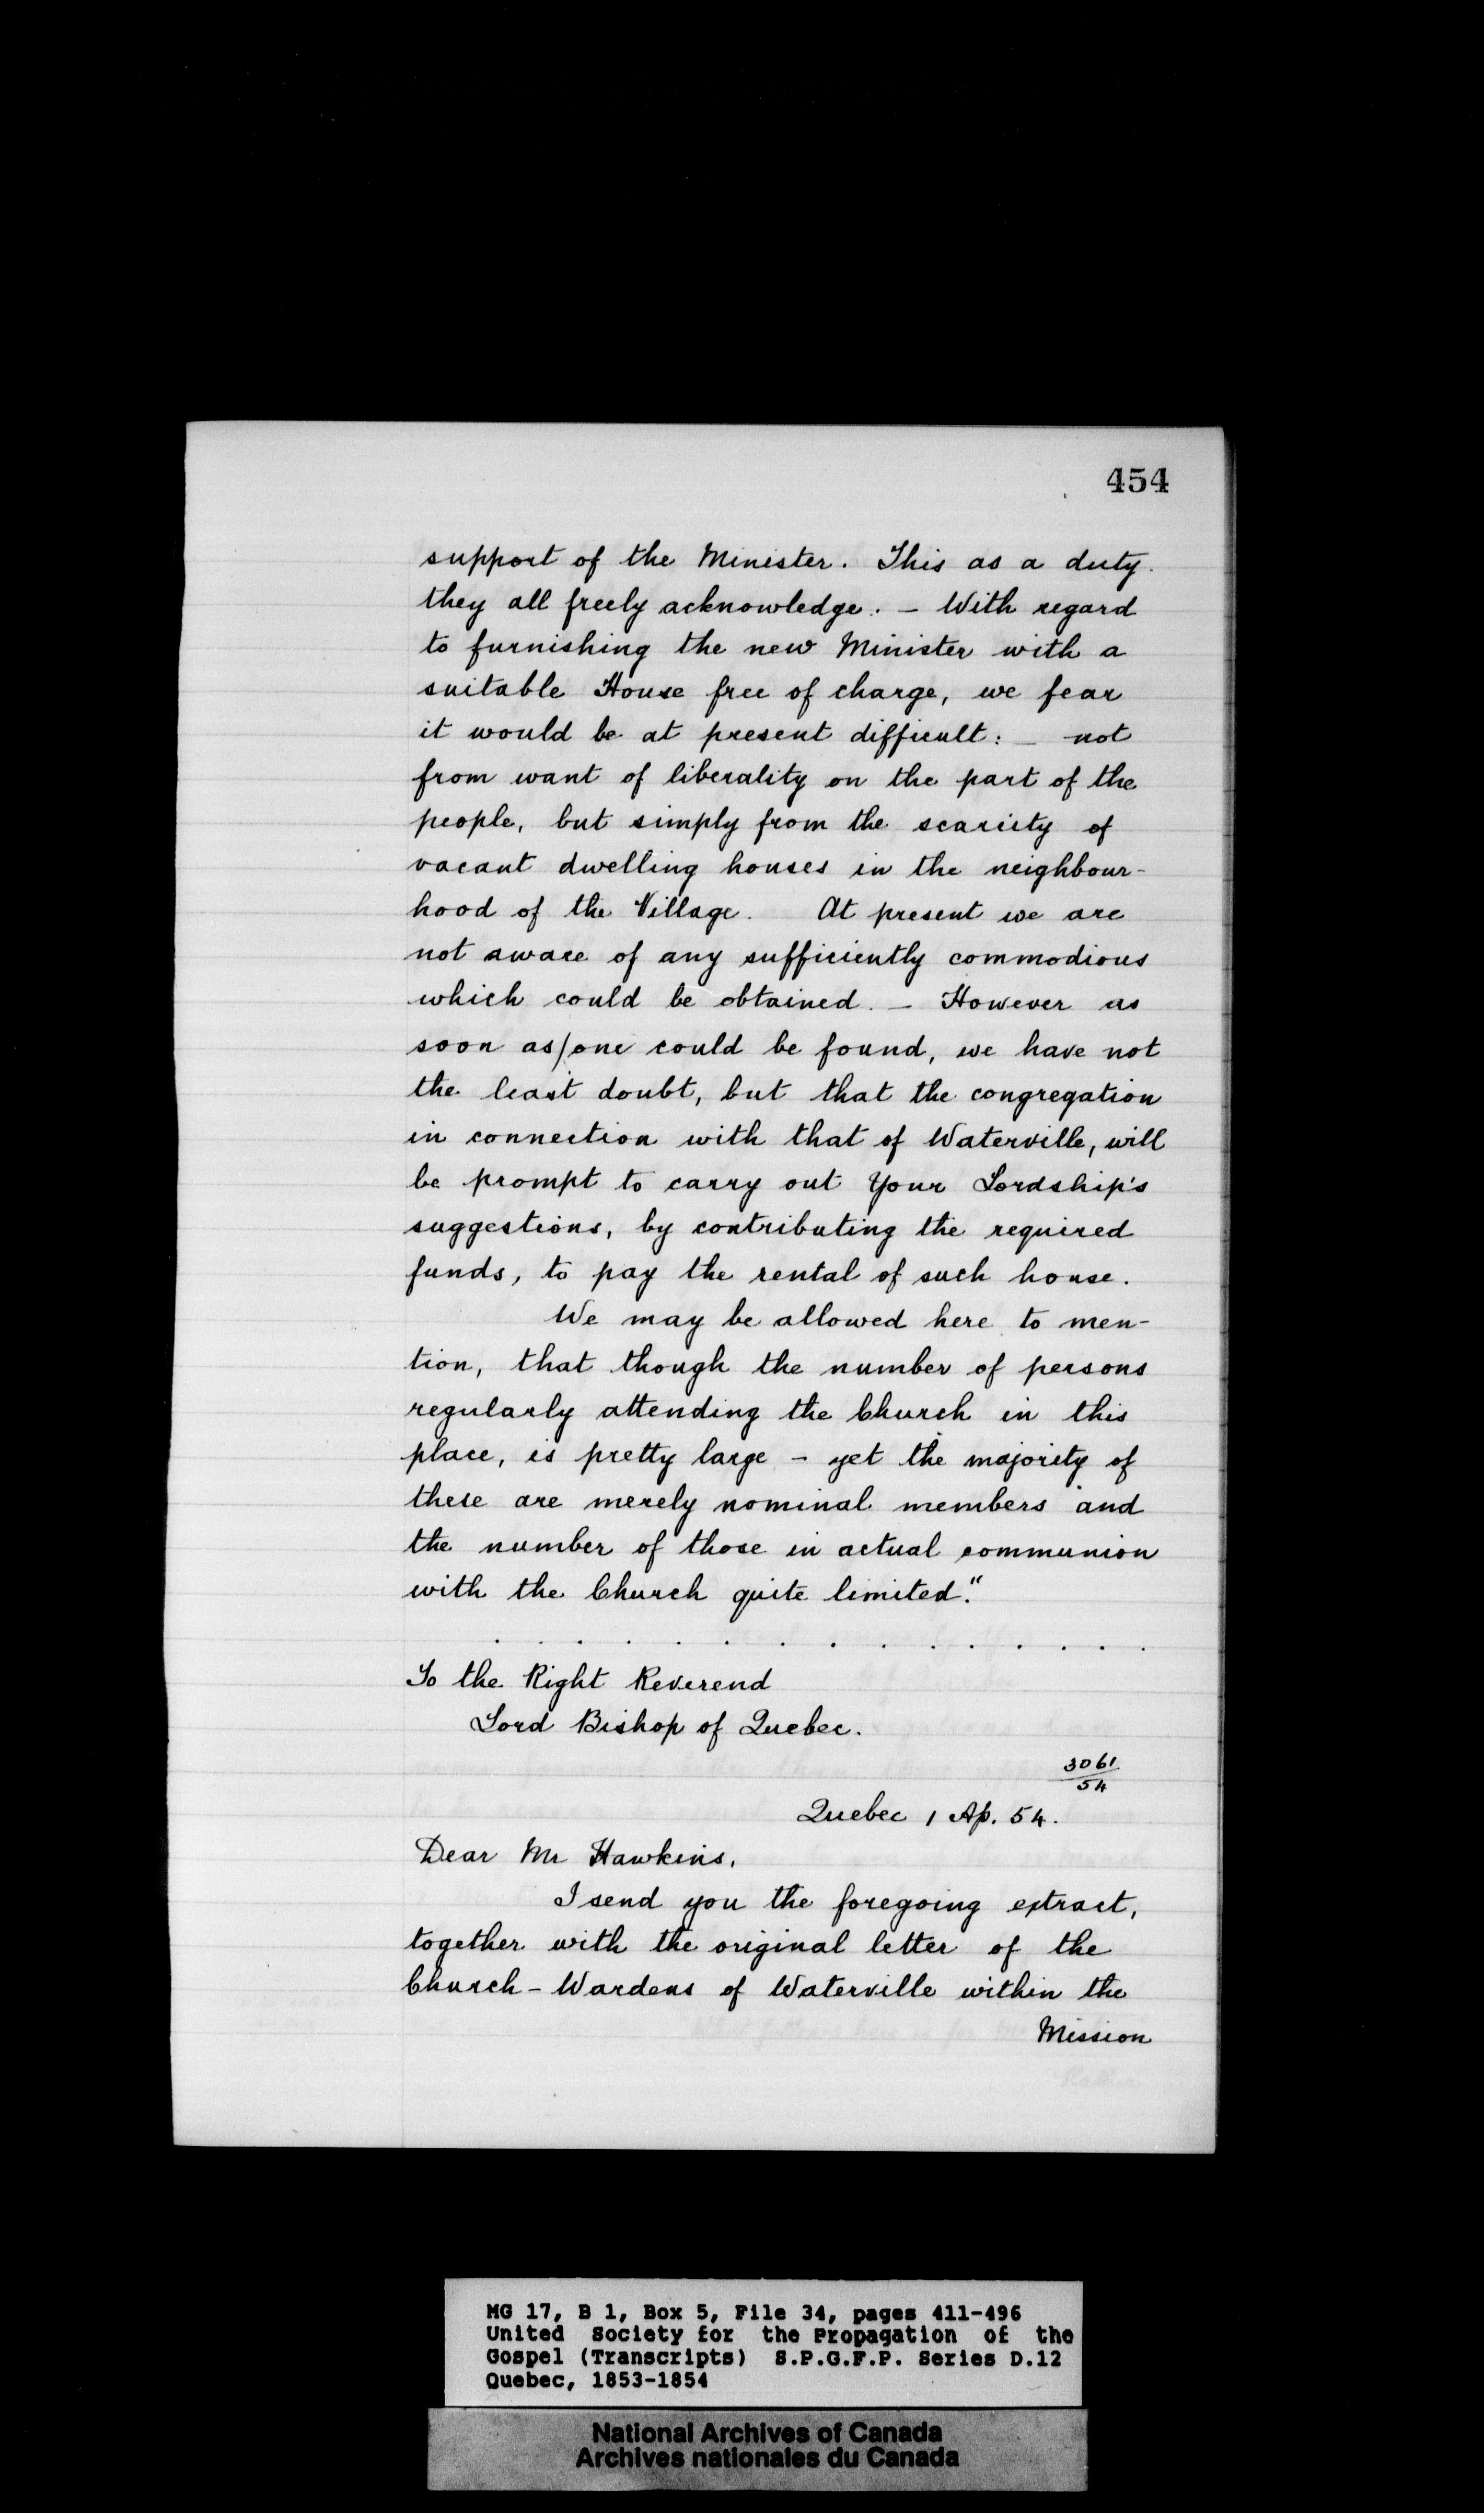 454
support of the Minister. This as a duty
they all freely acknowledge. – With regard
to furnishing the new Minister with a
suitable House free of charge, we fear
it would be at present difficult: – not
from want of liberality on the part of the
people, but simply from the scarcity of
vacant dwelling houses in the neighbour-
hood of the Village. At present we are
not aware of any sufficiently commodious
which could be obtained. – However as
soon as/one could be found, we have not
the least doubt, but that the congregation
in connection with that of Waterville, will
be prompt to carry out Your Lordship's
suggestions, by contributing the required
funds, to pay the rental of such house.
We may be allowed here to men-
tion, that though the number of persons
regularly attending the Church in this
place, is pretty large – yet the majority of
these are merely nominal members and
the number of those in actual communion
with the Church quite limited."
. . . . . . . . . . . . . . .
To the Right Reverend
Lord Bishop of Quebec.
3061
54
Quebec 1 Ap. 54.
Dear Mr Hawkins,
I send you the foregoing extract,
together with the original letter of the
Church-Wardens of Waterville within the
Mission
MG 17, B 1, Box 5, File 34, pages 411-496
United Society for the Propagation of the
Gospel (Transcripts) S.P.G.F.P. Series D.12
Quebec, 1853-1854
National Archives of Canada
Archives nationales du Canada